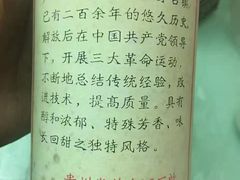 已有二百余年的悠久历史
解放后在中国共产党领导
下,开展三大革命运动,
不断地总结传统经验,改
进技术,提高质量。具有
醇和浓郁、特殊芳香,味
长回甜之独特风格。
贵州